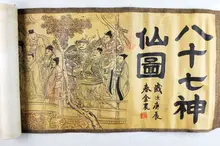 八十七神
仙圖
歲次庚辰
春金東